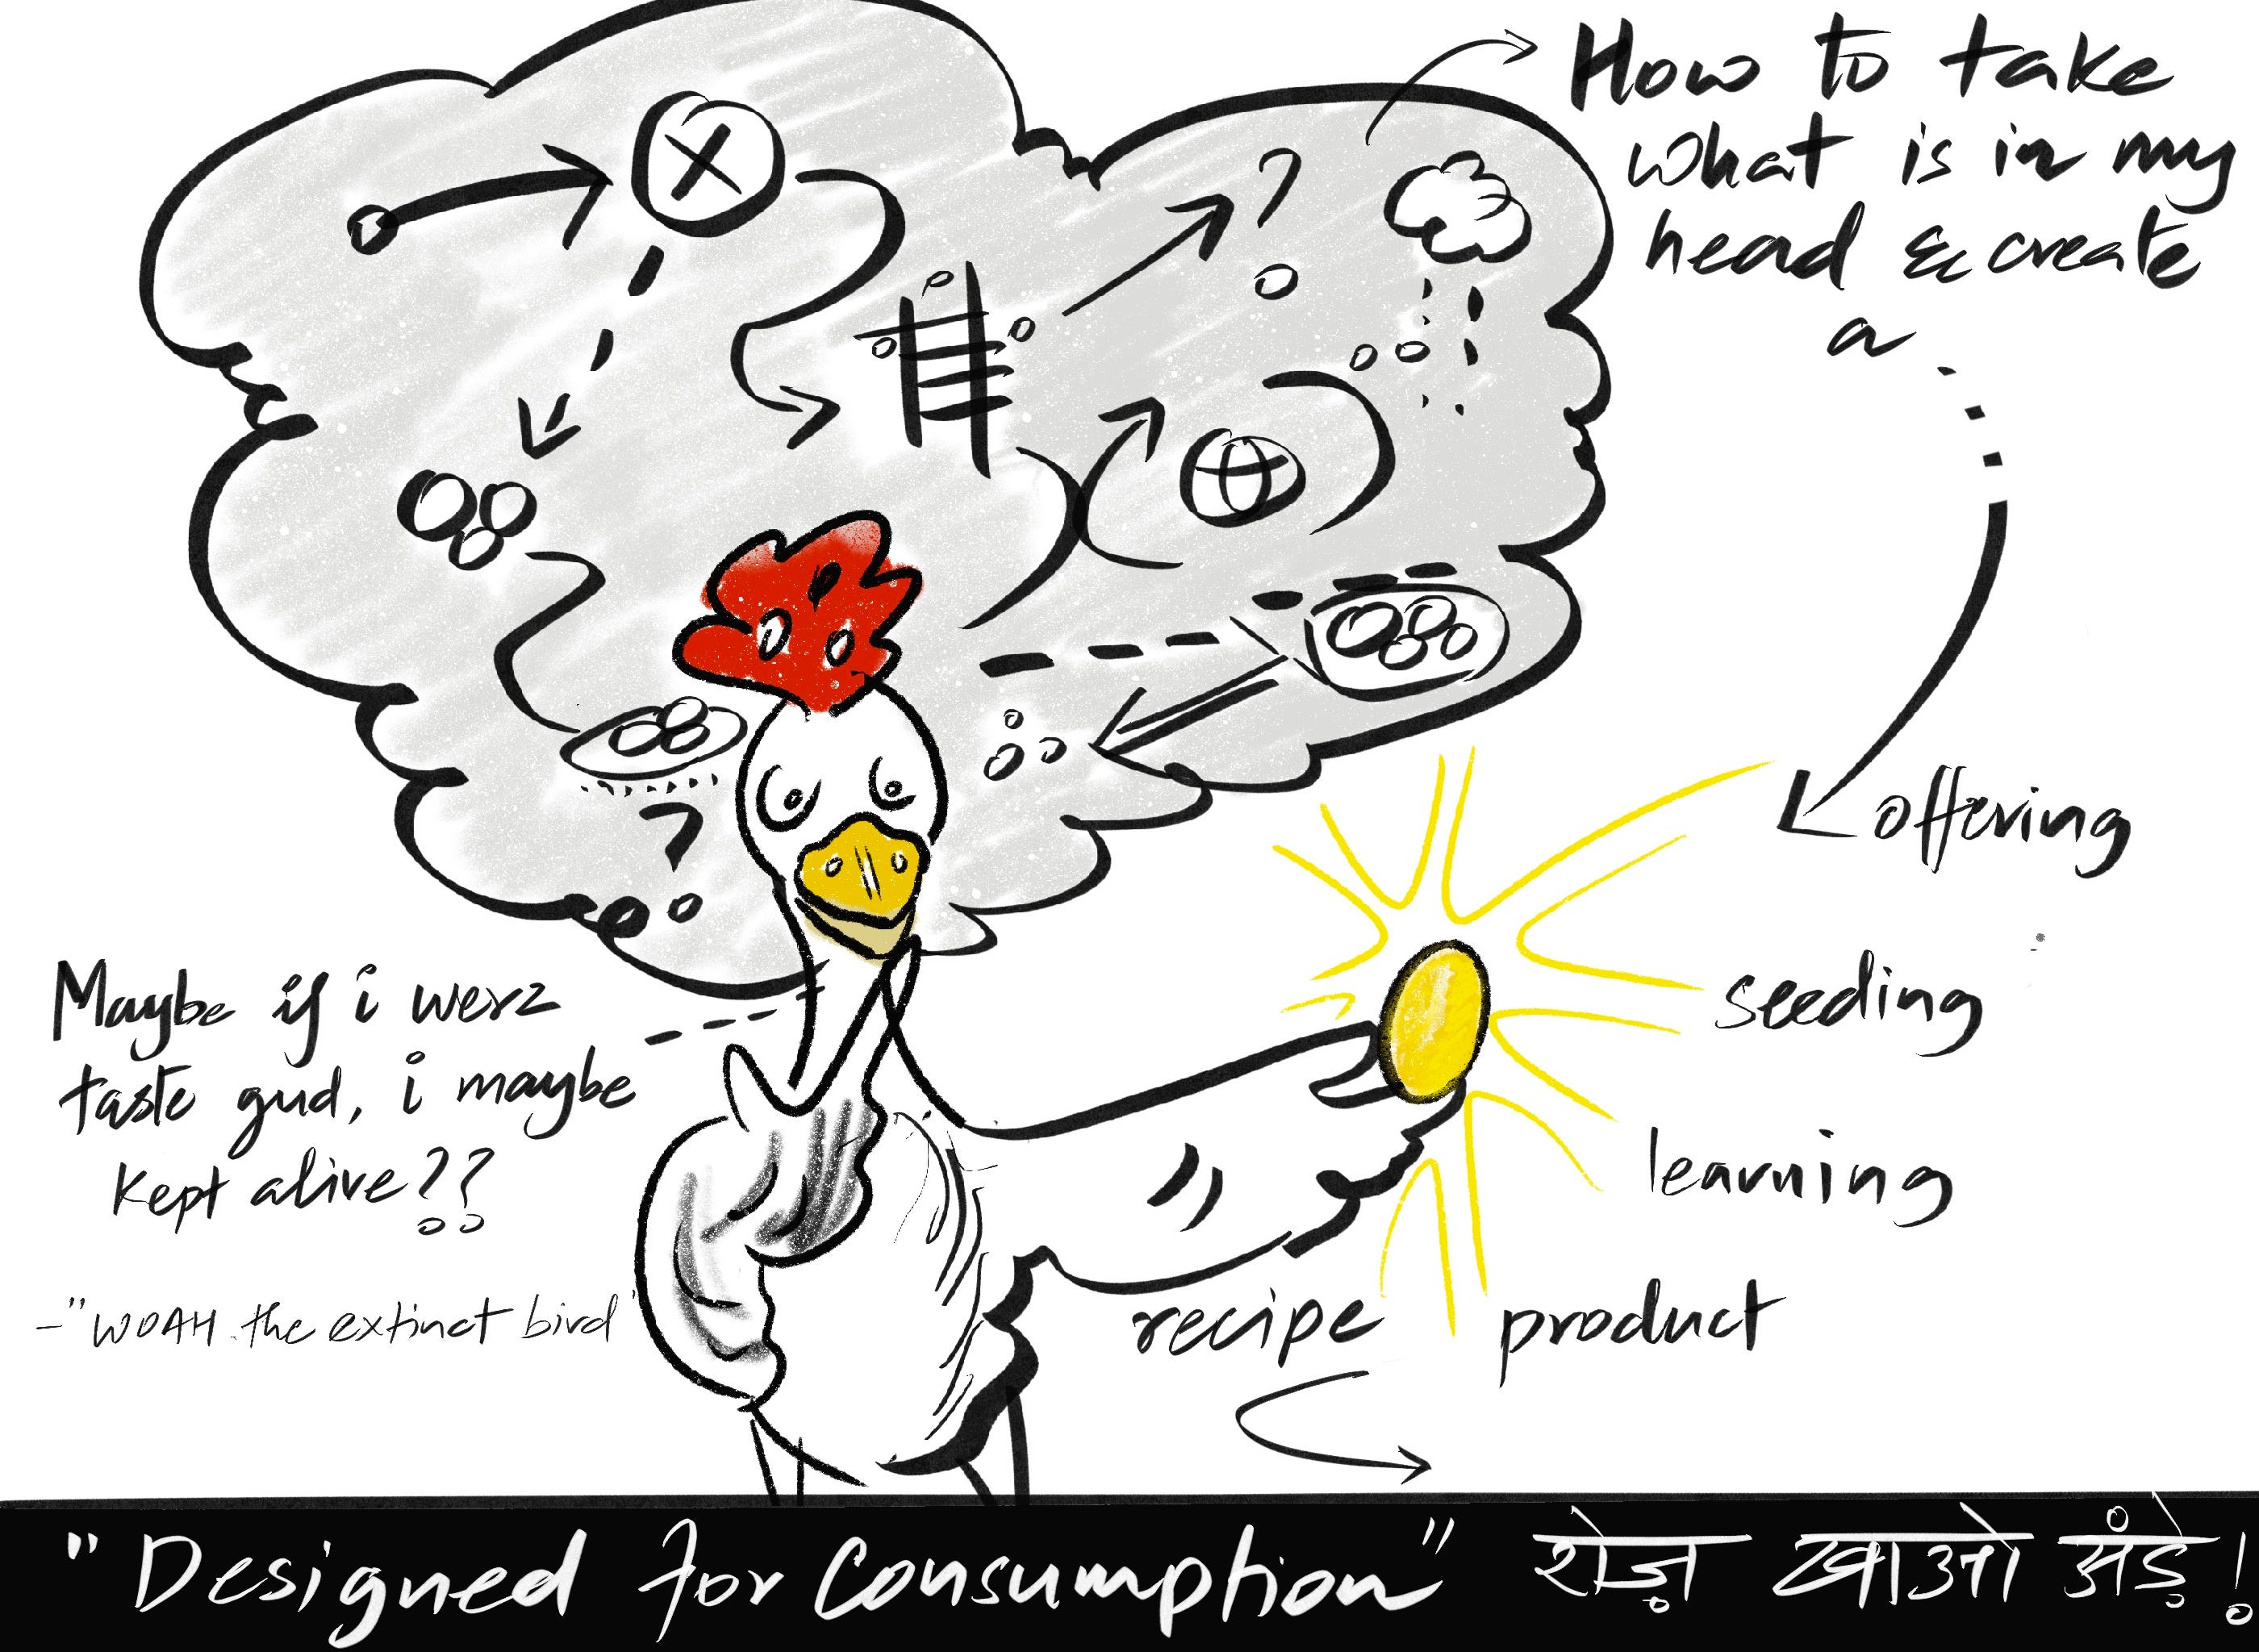 How to take
what is in my
head & create
a ...
offering
seeding
learning
recipe product
Maybe if i werz
taste gud, i maybe
kept alive??
- "WOAH the extinct bird"
"Designed for Consumption" रोज़ खाओ अंडे!